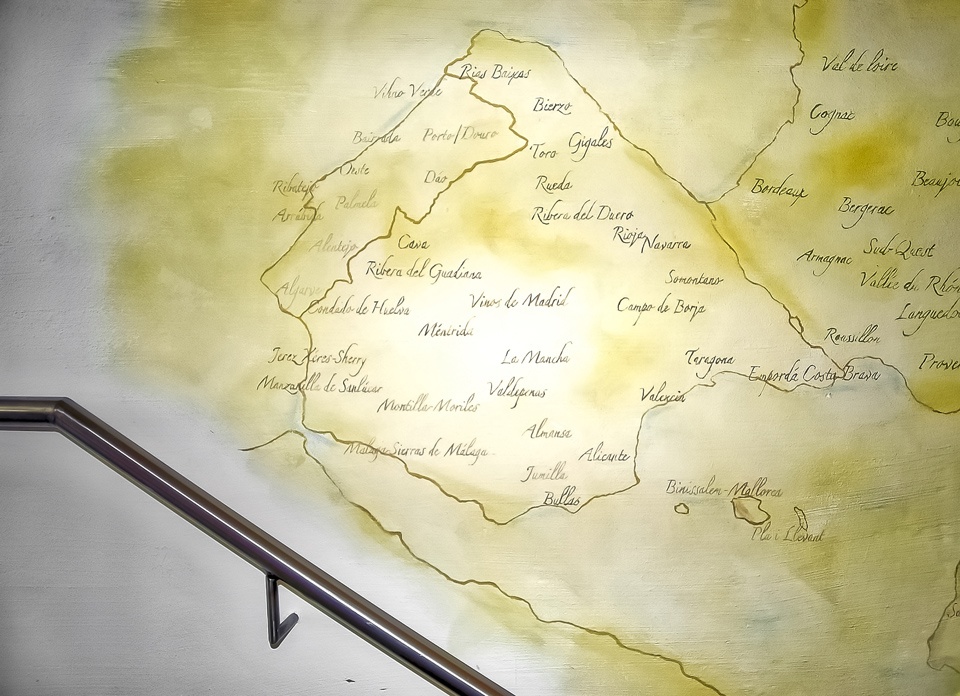 Val de Loire
Rias Baixas
Vinho Verde
Bierzo
Cognac
Bairrada
Porto/Douro
Gigales
Toro
Oeste
Dão
Rueda
Ribatejo
Bordeaux
Palmela
Arrábida
Ribera del Duero
Bergerac
Rioja
Navarra
Alentejo
Cava
Sud-Ouest
Armagnac
Ribera del Guadiana
Somontano
Algarve
Vinos de Madrid
Condado de Huelva
Campo de Borja
Méntrida
Roussillon
Jerez-Xeres-Sherry
La Mancha
Taragona
Empordà Costa Brava
Manzanilla de Sanlúcar
Valdepenas
Valencia
Montilla-Moriles
Almansa
Malaga-Sierras de Málaga
Alicante
Jumilla
Binissalem-Mallorca
Bullas
Pla i Llevant